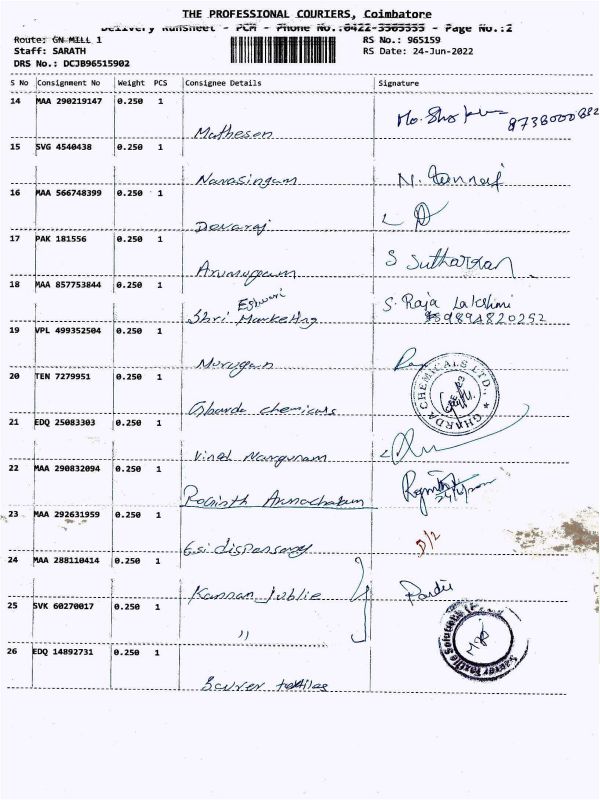 THE PROFESSIONAL COURIERS, Coimbatore
Delivery Runsheet - PCM - Phone No.:0422-3303333 - Page No.:2
Route: GN MILL 1 RS No.: 965159
Staff: SARATH RS Date: 24-Jun-2022
DRS No.: DCJB96515902
S No Consignment No Weight PCS Consignee Details Signature
14 MAA 290219147 0.250 1
Mathesen
15 SVG 4540438 0.250 1
Narasingam
16 MAA 566748399 0.250 1
Devaraj
17 PAK 181556 0.250 1
Arumugam S Sutharsan
18 MAA 857753844 0.250 1
Eshwari S. Raja Lakshmi
Shri Marketing 9894820252
19 VPL 499352504 0.250 1
Murugan
20 TEN 7279951 0.250 1
Gharda chemicals GHARDA CHEMICALS LTD.,
21 EDQ 25083303 0.250 1
22 MAA 290832094 0.250 1
Arunachalam
23 MAA 292631959 0.250 1
Esi dispensary D/2
24 MAA 288110414 0.250 1
Kannan Jublie
25 SVK 60270017 0.250 1
"
26 EDQ 14892731 0.250 1
Saurer textiles